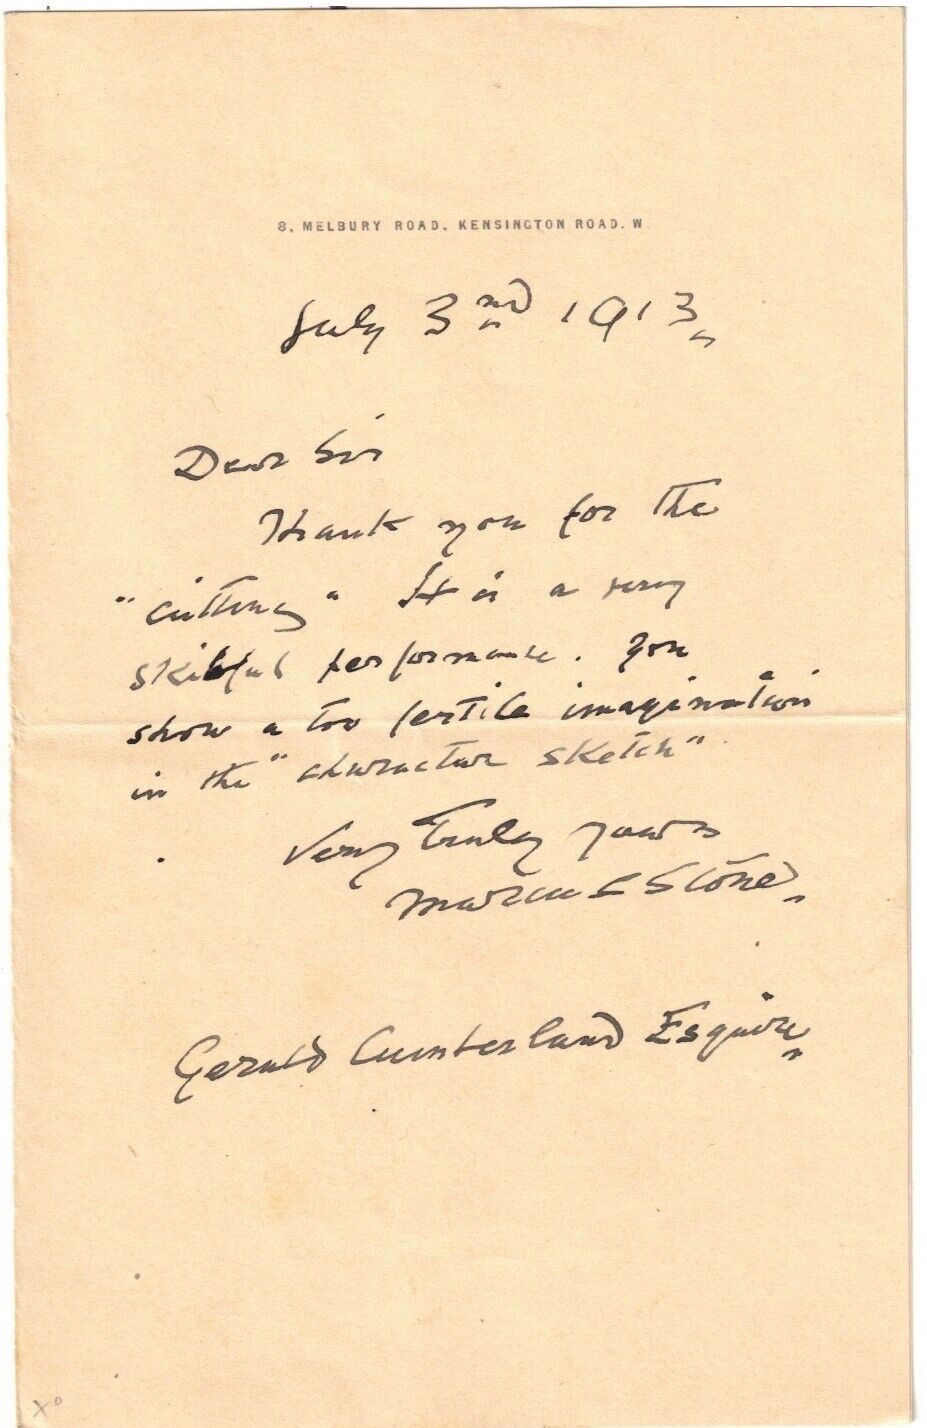 8, MELBURY ROAD, KENSINGTON ROAD. W.
July 3nd 1913
Dear Sir
Thank you for the
"cutting" It is a very
skilful performance. You
show a too fertile imagination
in the "character sketch"
Very Truly yours
Marcus Stone
Gerald Cumberland Esquire
x°